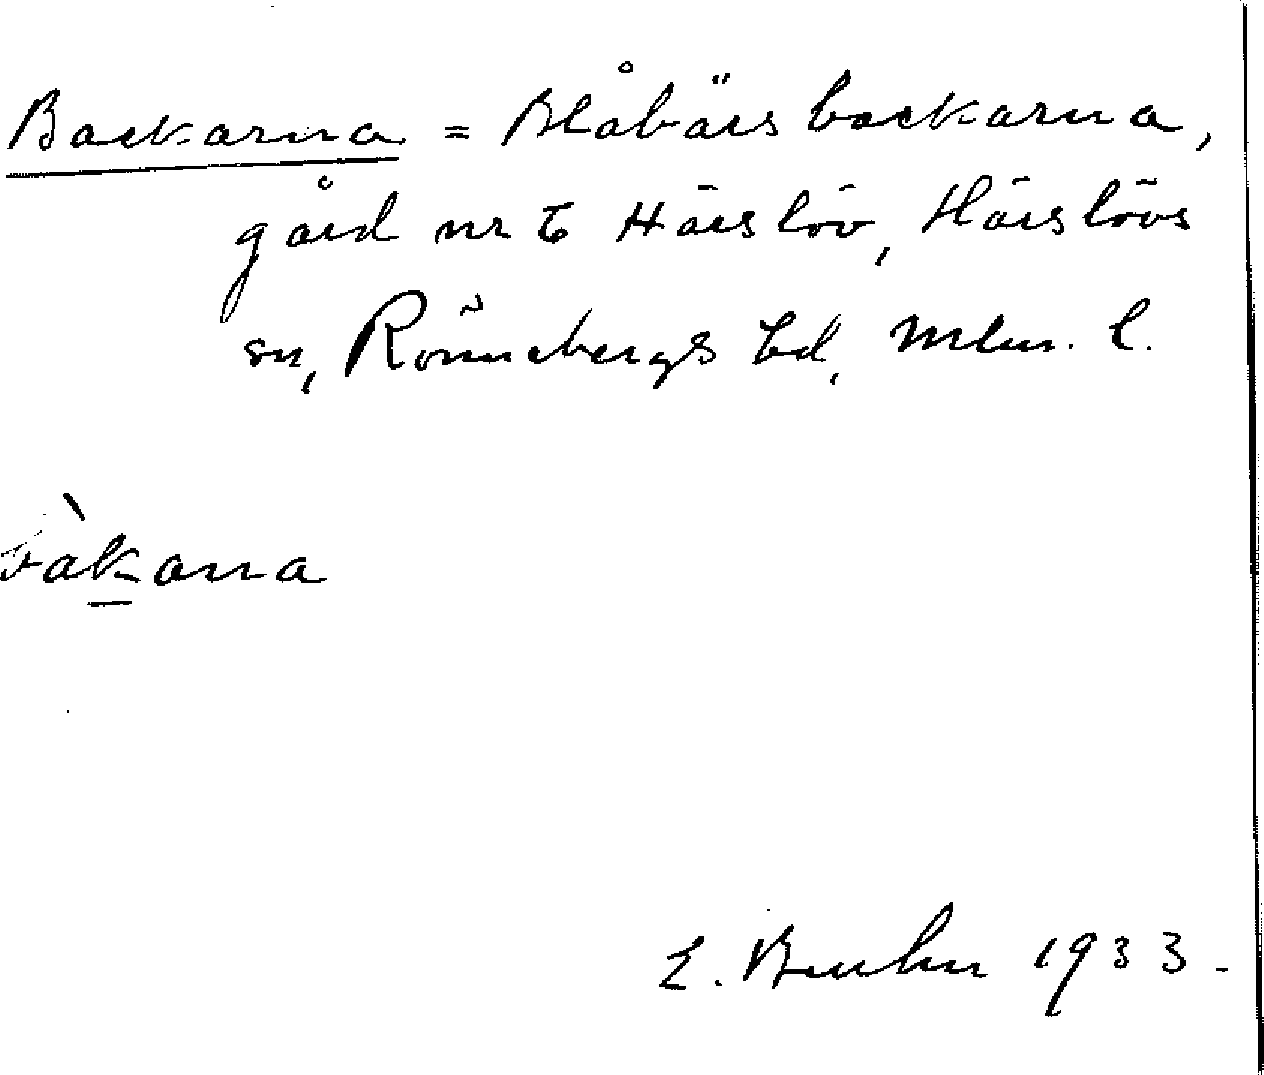 Backarna = Blåbärsbackarna,
gård nr 6 Härslöv, Härslövs
sn, Rönnebergs hd, Mlm. l.
bàkarna
E. Bruhn 1933.